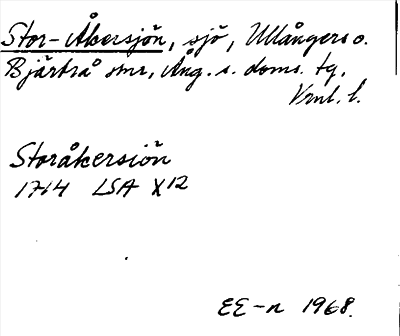 Stor-Åkersjön, sjö, Ullångers o.
Bjärtrå snr, Ång. s. doms. tg,
Vrnl. l.
Storåkersiön
1714 LSA X12
EE-n 1968.